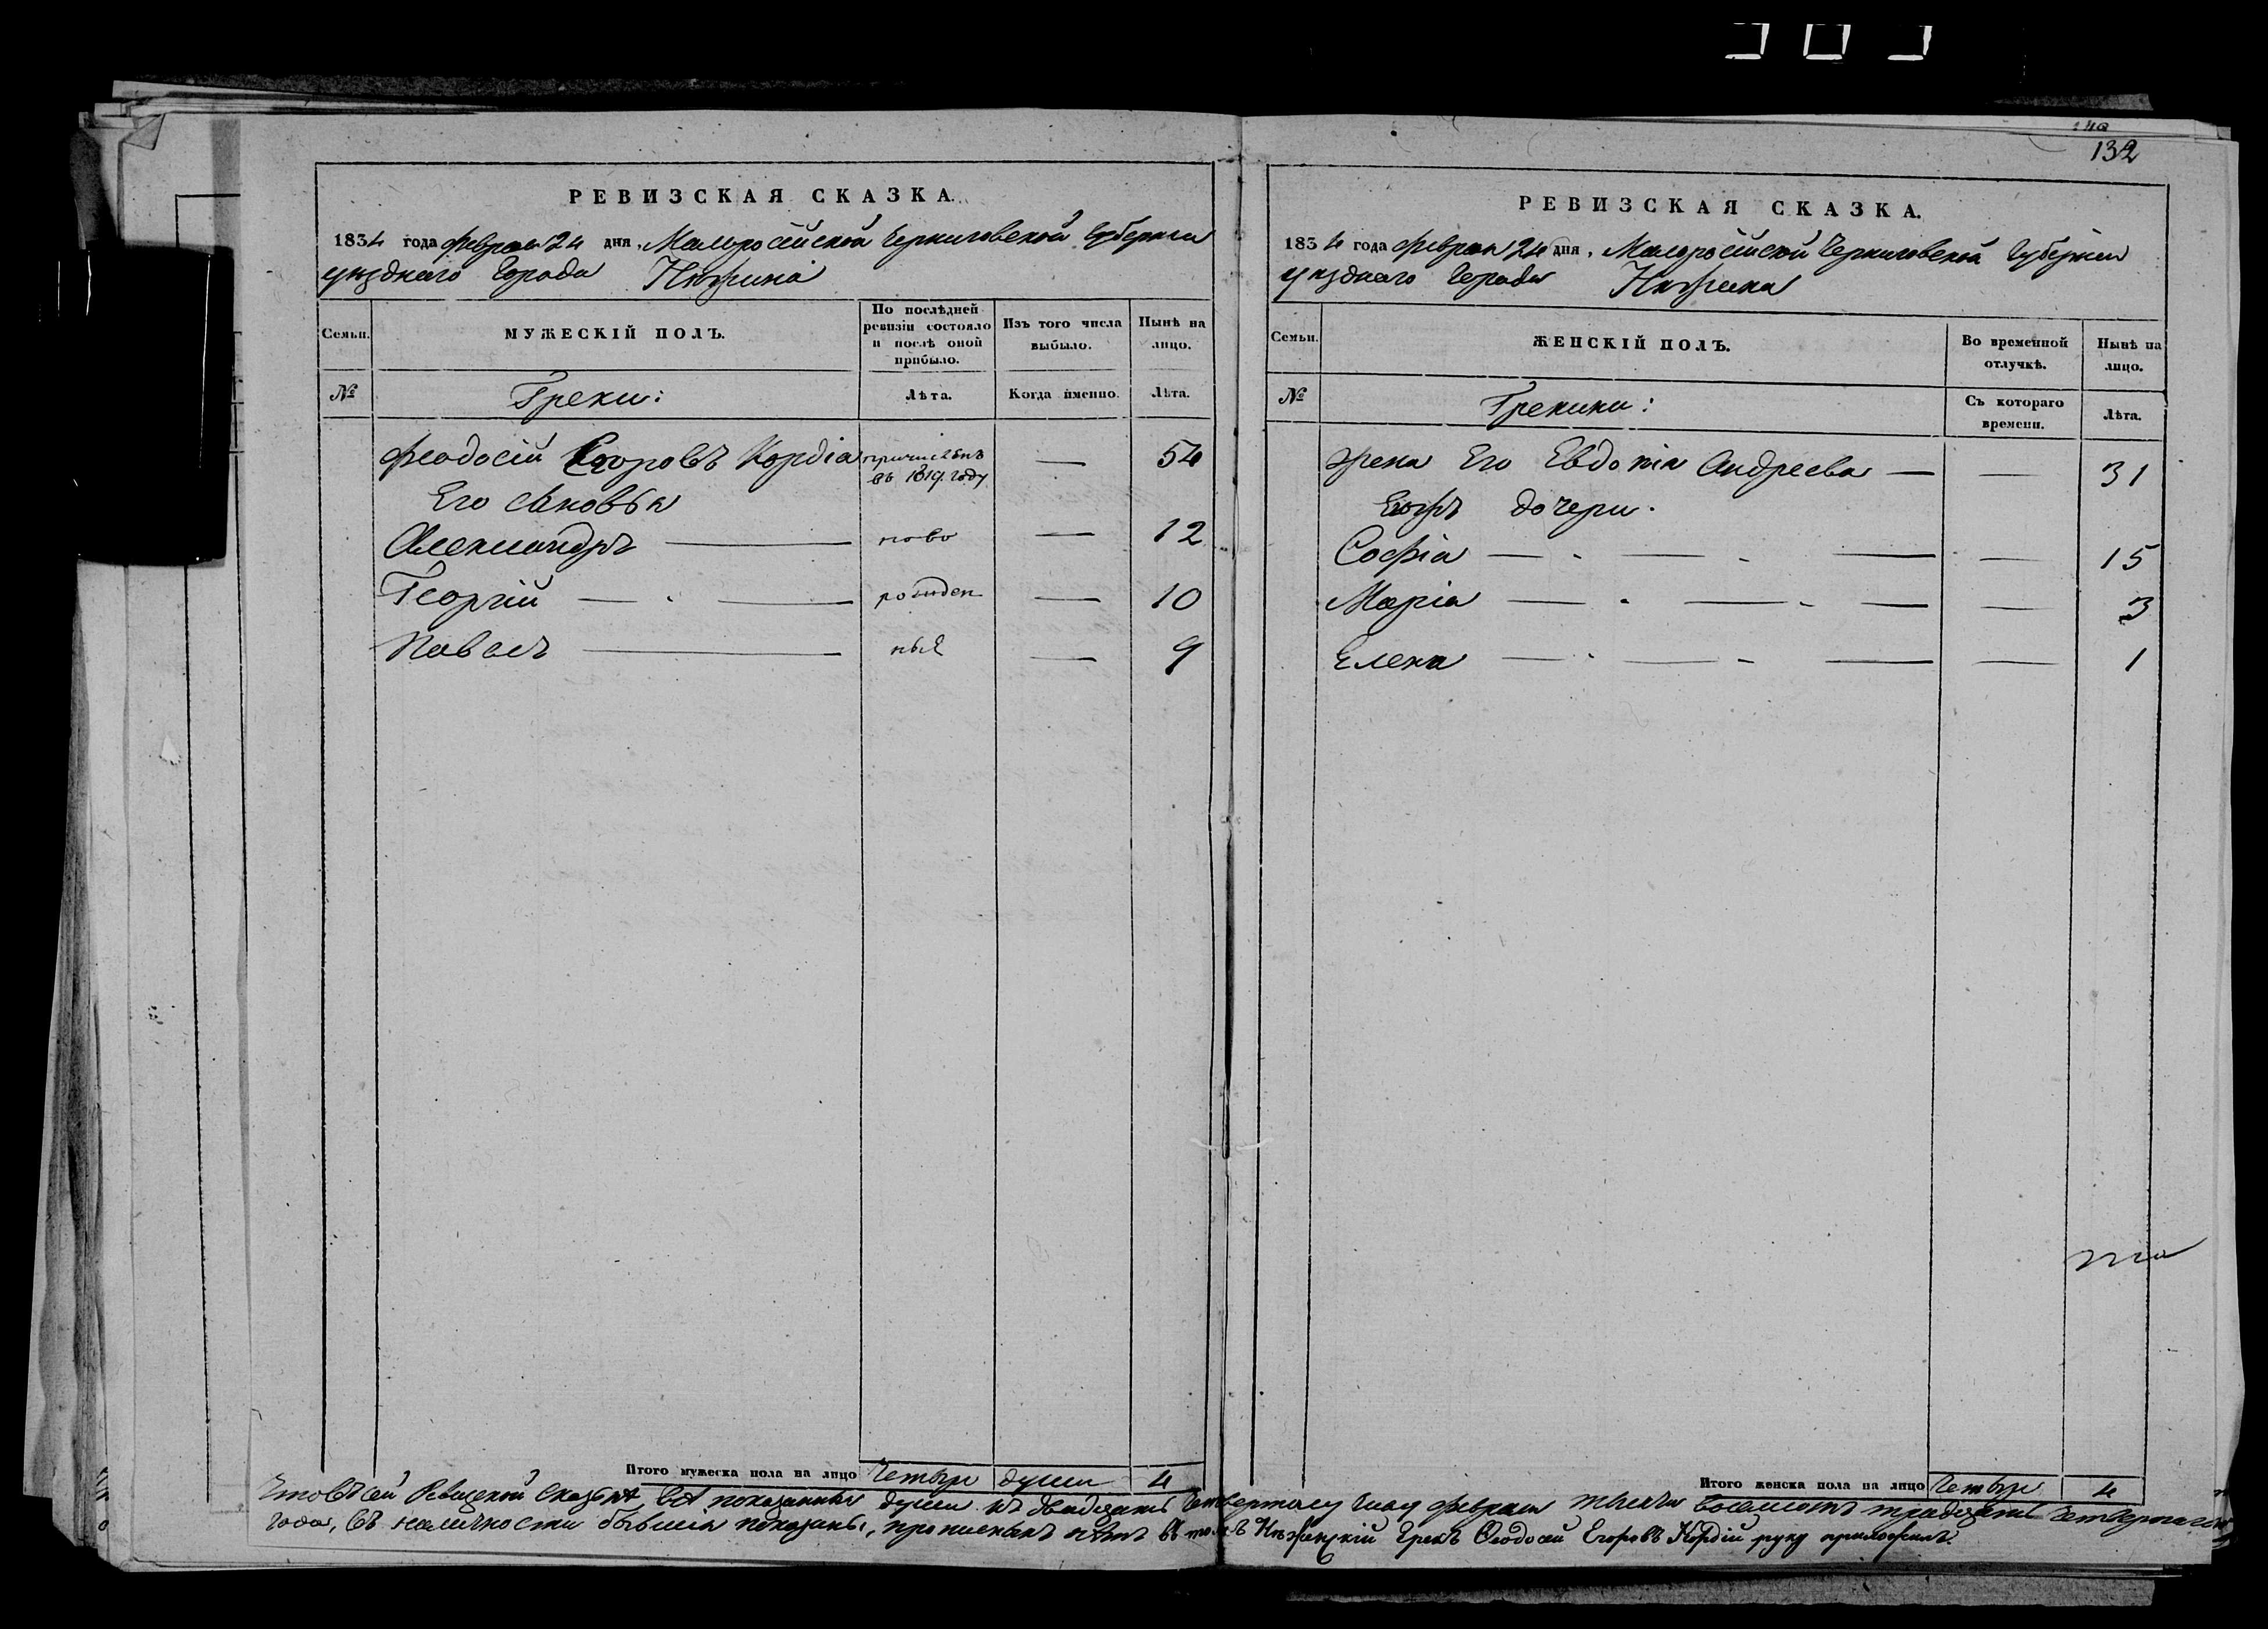 140
132
РЕВИЗСКАЯ СКАЗКА.
1834 года февраля 24 дня, Малоросійской Черниговской Губерніи
уѣзднаго Города Нѣжина
Семьи.
МУЖЕСКІЙ ПОЛЪ.
По послѣдней ревизіи состояло и послѣ оной прибыло.
Изъ того числа выбыло.
Нынѣ на лицо.
№
Греки:
Лѣта.
Когда именно.
Лѣта.
Феодосій Егоровъ Кордіа причисленъ въ 1819. году — 54
Его сыновья
Александръ — ново — 12
Георгій — рожден — 10
Павелъ — ныя — 9
Итого мужеска пола на лицо Четыре души 4
РЕВИЗСКАЯ СКАЗКА.
1834 года февраля 24 дня, Малоросійской Черниговской Губерніи
уѣзднаго Города Нѣжина
Семьи.
ЖЕНСКІЙ ПОЛЪ.
Во временной отлучкѣ.
Нынѣ на лицо.
№
Грекини:
Съ котораго времени.
Лѣта.
жена Его Евдокія Андреева — — 31
Ихъ дочери.
Софіа — - — - — — 15
Маріа — - — - — — 3
Елена — - — - — — 1
Итого женска пола на лицо Четыре 4
Что въ сей Ревизской Сказкѣ всѣ показанныя души къ двадцать Четвертому числу февраля тысяча восемсотъ тридцать четвертаго
года, въ наличности бывшіа показаны, прописныхъ нѣтъ въ томъ Нѣжинскій Грекъ Феодосій Егоровъ Кордій руку приложилъ.